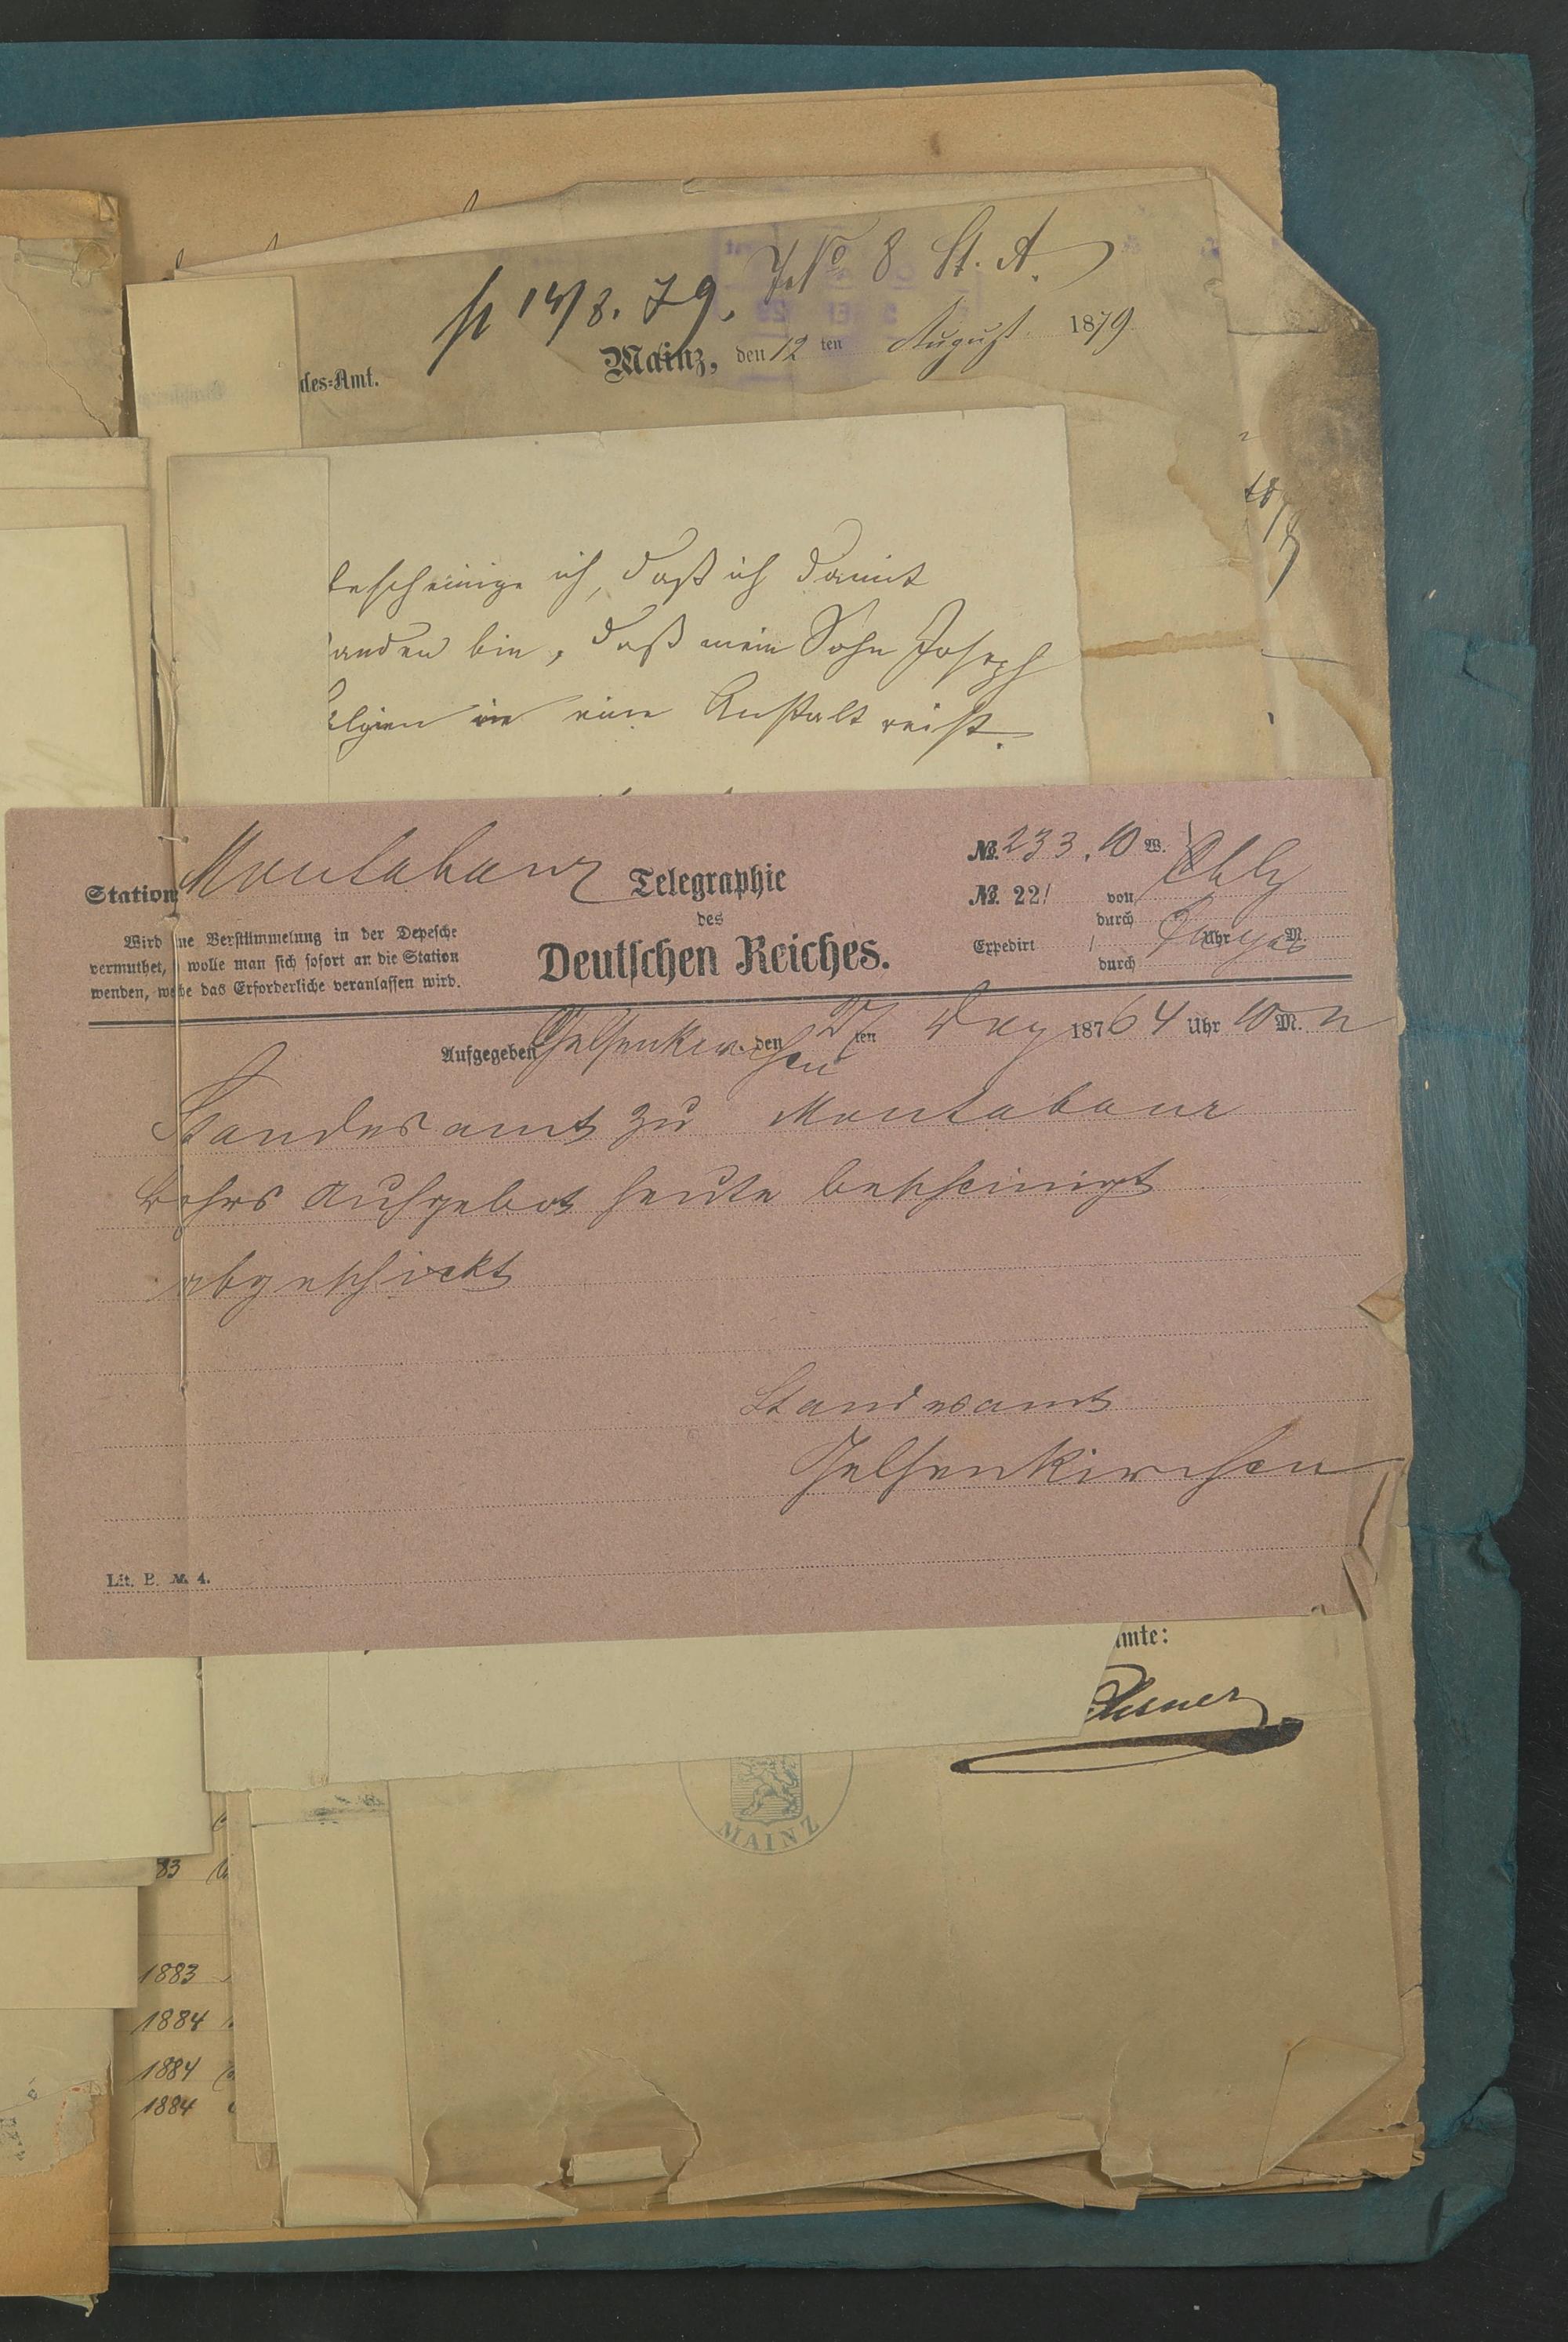 JNo 8 St. A.
p 14/8. 79.
des=Amt.
Mainz, den 12 ten August 1879
bescheinige ich, daß ich damit
anden bin, daß mein Sohn Joseph
elgien in eine Anstalt reist.
Station Montabaur
Telegraphie
des
Deutschen Reiches.
Wird ne Verstümmelung in der Depesche
vermuthet, wolle man sich sofort an die Station
wenden, we he das Erforderliche veranlassen wird.
№ 233. 10 W.
№ 221 von
durch
Expedirt Uhr M.
durch
Aufgegeben Gelsenkirchen den 27 ten 1876 4 Uhr 10 M. N
Standesamt zu Montabaur
Aufgebot heute bescheinigt
abgeschickt
Standesamt
Gelsenkirchen
Lit. B. № 4.
amte:
MAINZ
83
1883
1884
1884
1884